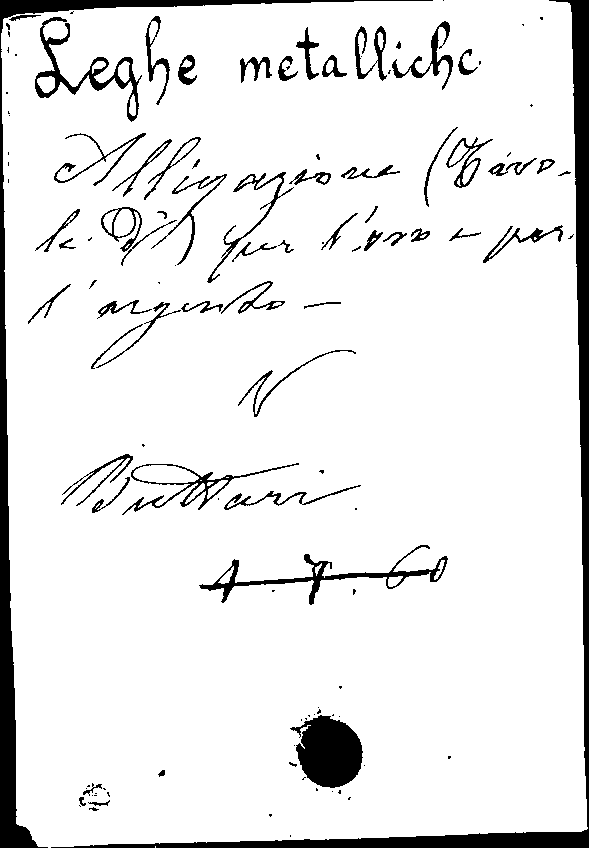 Leghe metalliche
Alligazione (Tavo-
le d') per l'oro e per
l'argento –
V
Buttari
1. 7. 60